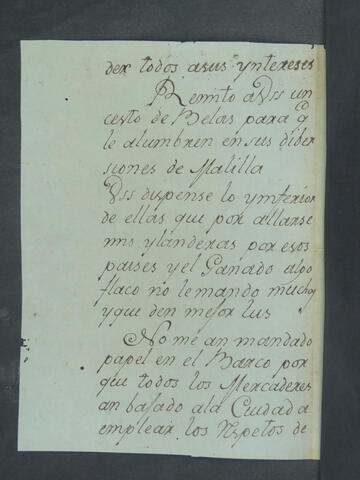 der todos asus yntereses
Remito a Vss un
cesto de Belas para q
le alumbren en sus diber
siones de Malilla
Vss dispense lo ymferior
de ellas que por allarse
mis ylanderas por esos
paises y el Ganado algo
flaco no le mando muchas
y que den mejor lus
No me an mandado
papel en el Barco por
que todos los Mercaderes
an bajado ala Ciudad a
emplear los Respetos de